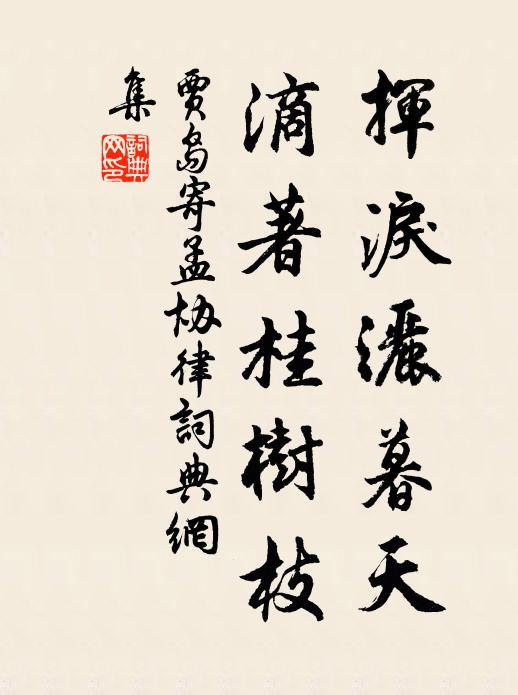 揮淚灑暮天
滴著桂樹枝
賈島寄孟協律詞典網
集
詞典網印